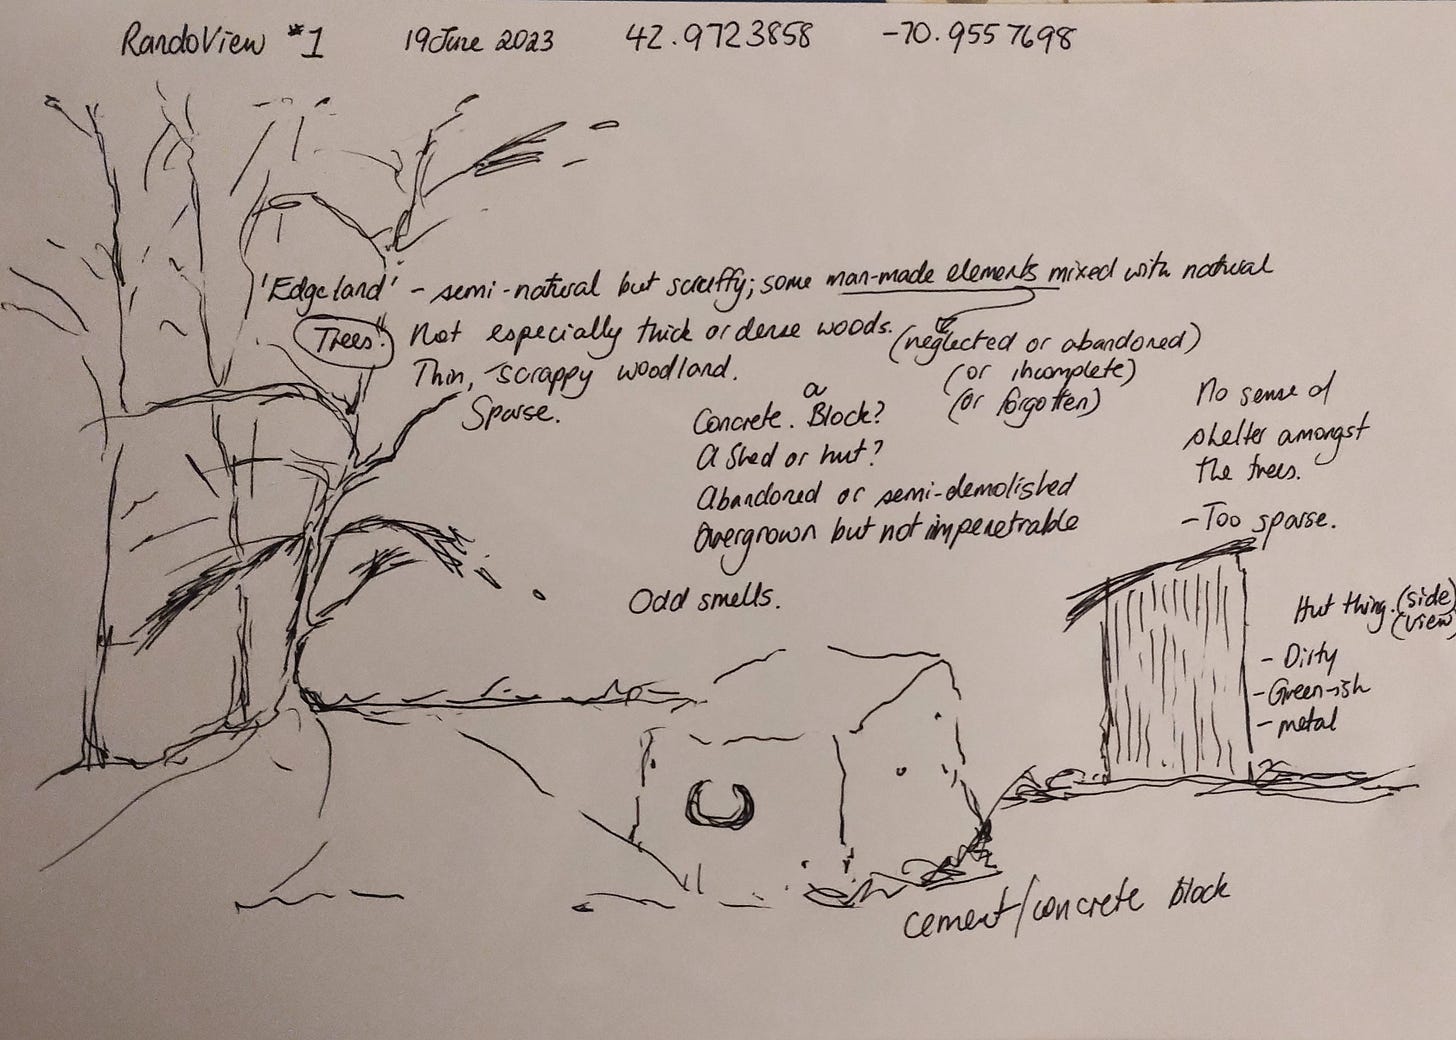 RandoView #1 19 June 2023 42.9723858 -70.9557698
'Edgeland' - semi-natural but scruffy; some man-made elements mixed with natural
Trees! Not especially thick or dense woods.
(neglected or abandoned)
Thin, scrappy woodland.
(or incomplete)
Sparse.
(or forgotten)
Concrete. a Block?
A shed or hut?
Abandoned or semi-demolished
Overgrown but not impenetrable
No sense of
shelter amongst
the trees.
- Too sparse.
Odd smells.
Hut thing. (side)
(view
- Dirty
- Green-ish
- metal
cement/concrete block